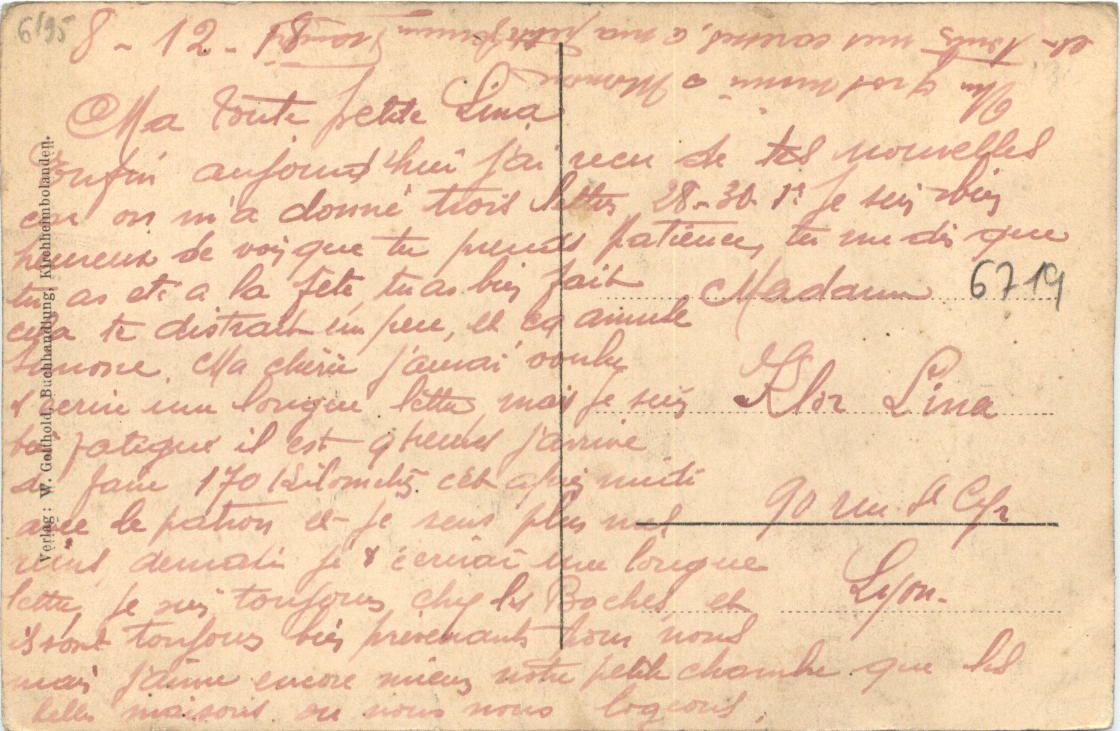 6/95
8 - 12 - 18
Ma toute petite Lina
Enfin aujourd'hui j'ai recu de tes nouvelles
car on m'a donné trois lettres 28-30-1er je suis bien
heureux de voir que tu prends patience, tu me dis que
tu as ete a la fete tu as bien fait
cela te distrait un peu, et ca amuse
Simone. Ma chérie j'aurai voulu
t'ecrire une longue lettre mais je suis
fatigue il est 9 heures j'arrive
de faire 170 Kilometres cet apres midi
avec le patron et je sens plus mes
reins, demain je t'ecrirai une longue
lettre, je suis toujours chez les Boches et
ils sont toujours bien prévenants pour nous
mais j'aime encore mieux notre petite chambre que les
belles maisons ou nous nous logeons.
Un gros mimi a Simone
et tous mes caresses, a ma petite femme
Madame
6719
Flor Lina
90 rue St Cyr
Lyon.
Verlag: W. Gotthold, Buchhandlung, Kirchheimbolanden.